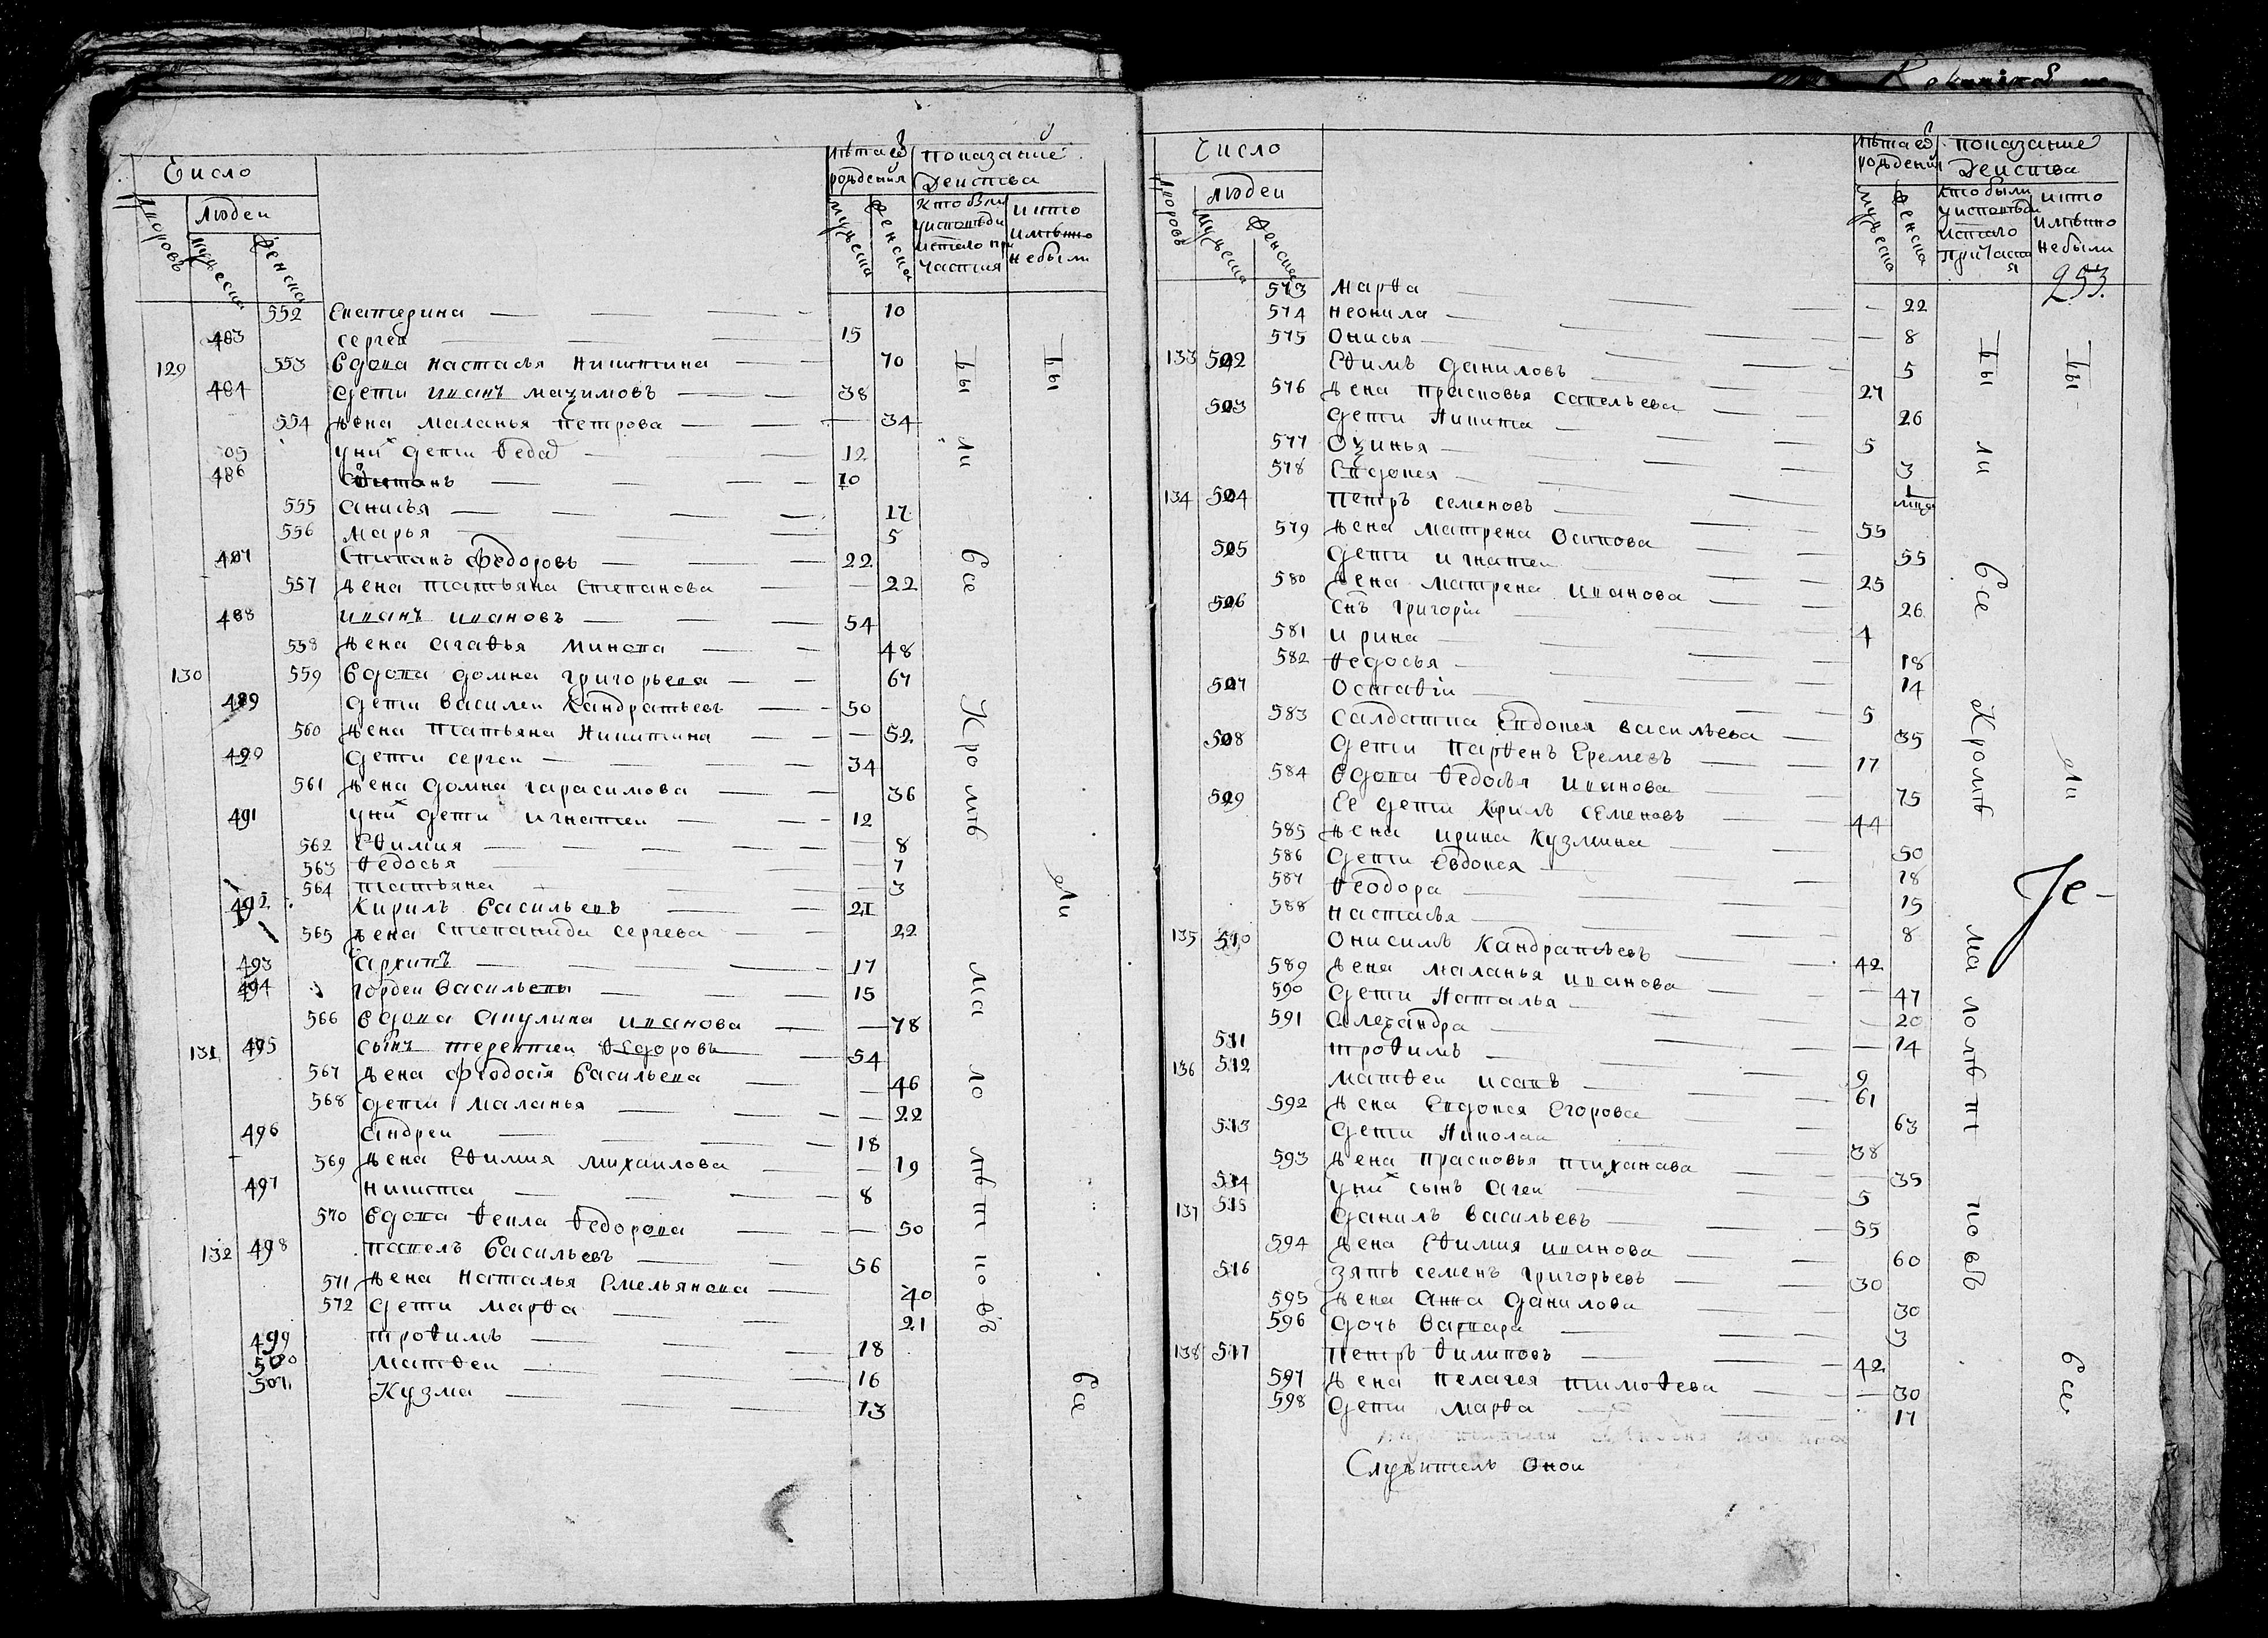 Число
людеи
лѣта ѿ рожденія
показание
деиства
дворовъ
мужеска
женска
мужеска
женска
кто были
у исповѣди
и с того при
частия
и кто
имѣнно
не были
552 Екатерина 10
483 сергеи 15
129 553 вдова настасья никитина 70
484 дети иванъ мазимовъ 38
554 жена маланья петрова 34
у них дети ѳедоⷬ 12
486 10
555 анисья 12
556 марья 5
487 Степанъ федоровъ 22
557 жена татьяна степанова 22
488 иванъ ивановъ 54
558 жена агаѳья минова 48
130 559 вдова домна григорьева 67
489 дети василеи кандратьевъ 50
560 жена татьяна никитина 52
490 дети сергеи 34
561 жена домна гарасимова 36
491 у них дети игнатеи 12
562 Еѳимия 8
563 ѳедосья 7
564 татьяна 3
492 кирилъ васильевъ 21
565 жена степанида сергева 22
493 архипъ 17
494 гордеи васильевы 15
566 вдова акулина иванова 78
131 495 сынъ терентеи ѳедоровъ 54
567 жена феодосія васильева 46
568 дети маланья 22
496 андреи 18
569 жена Еѳимия михаилова 19
497 никита 8
570 вдова ѳекла ѳедорова 50
132 498 павелъ васильевъ 56
571 жена наталья Емельянова 40
572 дети марѳа 21
499 троѳимъ 18
500 матвеи 16
501 кузма 13
бы
ли
все
кроме
ма
ло
лѣт
но въ
бы
ли
все
Число
людеи
дворовъ
мужеска
женска
лѣта ѿ
рождения
мужеска
женска
показание
деиства
кто были
у исповѣди
и с того
причаст
я
и кто
имѣнно
не были
253
573 марѳа 22
574 неонила 8
575 Онисья 5
133 502 Еѳимъ даниловъ 27
576 жена прасковья савельева 26
503 дети никита 5
577 Озинья 3
578 Евдокея
134 504 петръ семеновъ 55
579 жена матрена осипова 55
505 дети игнатеи 25
580 жена матрена иванова 26
506 снъ григории 4
581 ирина 18
582 ѳедосья 14
507 Остаѳіи 5
583 салдатка Евдокея васильева 35
508 дети парѳенъ Еремевъ 17
584 вдова ѳедосья иванова 75
509 Ее дети кирилъ семеновъ 44
585 жена ирина кузмина 50
586 дети Евдокея 18
587 ѳеодора 15
588 настасья 8
135 510 Онисимъ кандратьевъ 42
589 жена маланья иванова 47
590 дети наталья 20
591 алезандра 14
511 троѳимъ 9
136 512 матвеи исаевъ 61
592 жена Евдокея Егорова 63
513 дети николаи 38
593 жена прасковья тиханава 35
514 у них сынъ агеи 5
137 515 данилъ васильевъ 55
594 жена Еѳимия иванова 60
516 зять семенъ григорьевъ 30
595 жена анна данилова 30
596 дочь варвара 3
138 517 петръ ѳилиповъ 42
597 жена пелагея тимоѳева 30
598 дети марѳа 17
Служитель Онои
бы
ли
все
кромѣ
ма
лолѣт
но въ
бы
ли
все